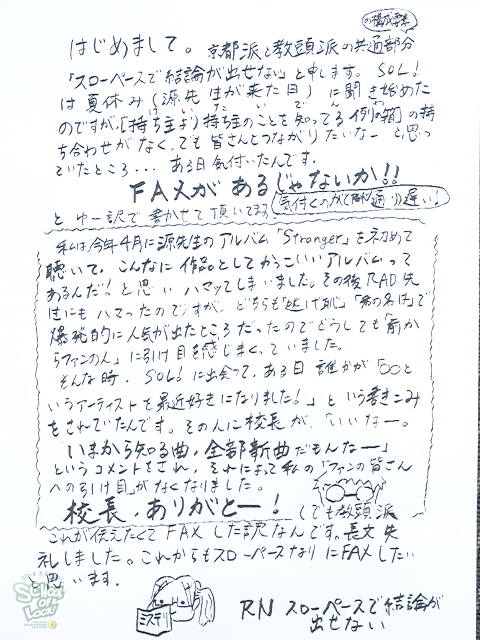 の構成要素
はじめまして。京都派と教頭派の共通部分
「スローペースで結論が出せない」と申します。SOL!
は夏休み(源先生が来た日)に聞き始めた
のですが、「持ち主より持ち主のことを知ってる例の箱」の持
ち合わせがなく、でも皆さんとつながりたいなーと思っ
ていたところ... ある日気付いたんです。
FAXがあるじゃないか!!
とゆー訳で書かせて頂いてます(気付くのが文字通り遅い!)
私は今年4月に源先生のアルバム「Stranger」を初めて
聴いて、こんなに作品としてかっこいいアルバムって
あるんだ!と思いハマッてしまいました。その後RAD先
生にもハマったのですが、どちらも「逃げ恥」「君の名は」で
爆発的に人気が出たところだったのでどうしても「前か
らファンの人」に引け目を感じまくっていました。
そんな時、SOL!に出会って、ある日誰かが「○○と
いうアーティストを最近好きになりました!」という書きこみ
をされていたんです。その人に校長が、「いいなー。
いまから知る曲、全部新曲だもんなー」
というコメントをされ、それによって私の「ファンの皆さん
への引け目」がなくなりました。
校長、ありがとー!(でも教頭派
これが伝えたくてFAXした訳なんです。長文失
礼しました。これからもスローペースなりにFAXしたい
と思います。
ミステリ
RN スローペースで結論が
出せない
School of Lock!